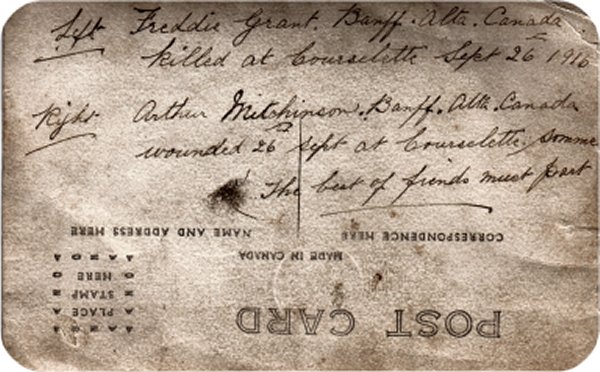 Left Freddie Grant. Banff. Alta. Canada.
killed at Courselette Sept 26 1916
Right Arthur Mitchinson. Banff. Alta. Canada
wounded 26 Sept at Courselette, Somme
The best of fiends must part
CORRESPONDENCE HERE
NAME AND ADDRESS HERE
MADE IN CANADA
PLACE
STAMP
HERE
POST CARD